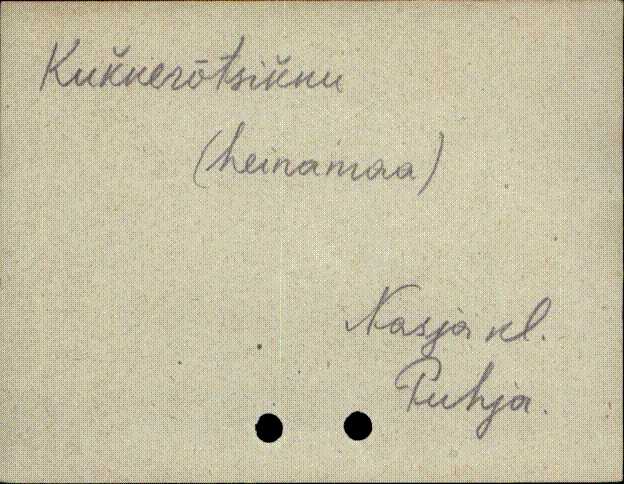 Kukkerõtsikku
(heinamaa)
Nasja kl.
Puhja.